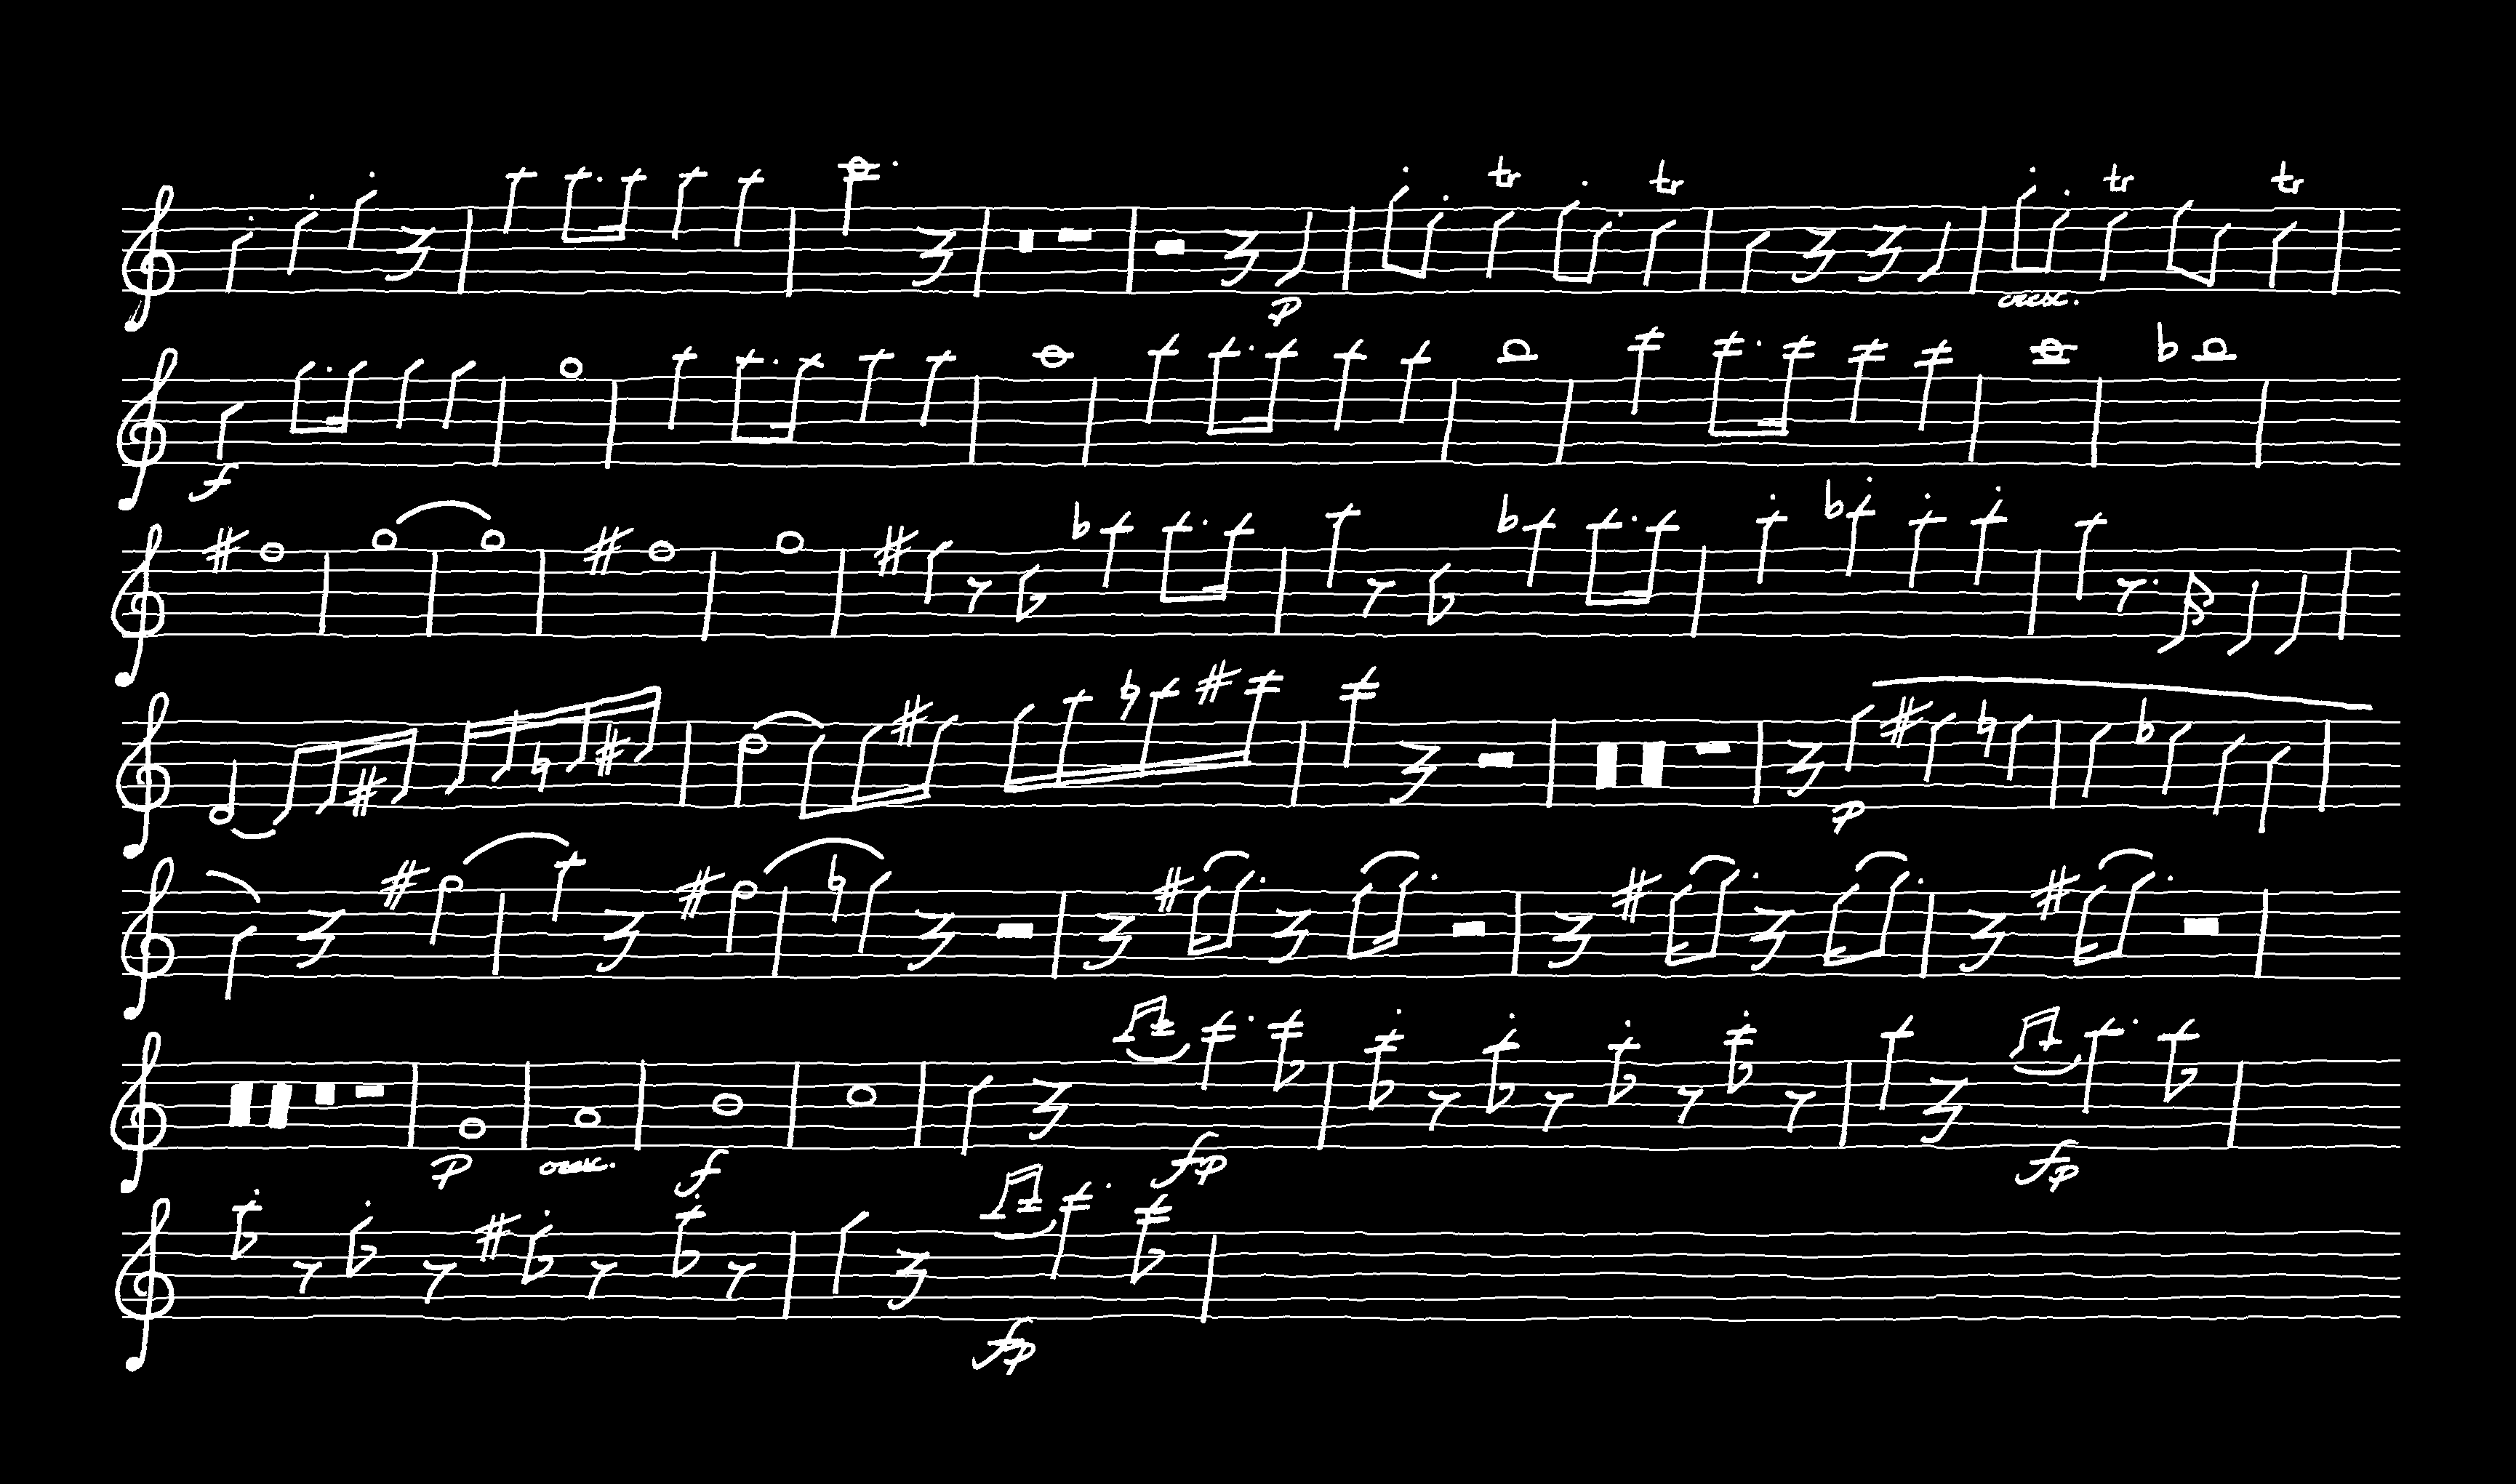 tr tr tr tr
p cresc.
f
p
p cresc. f fp fp
fp